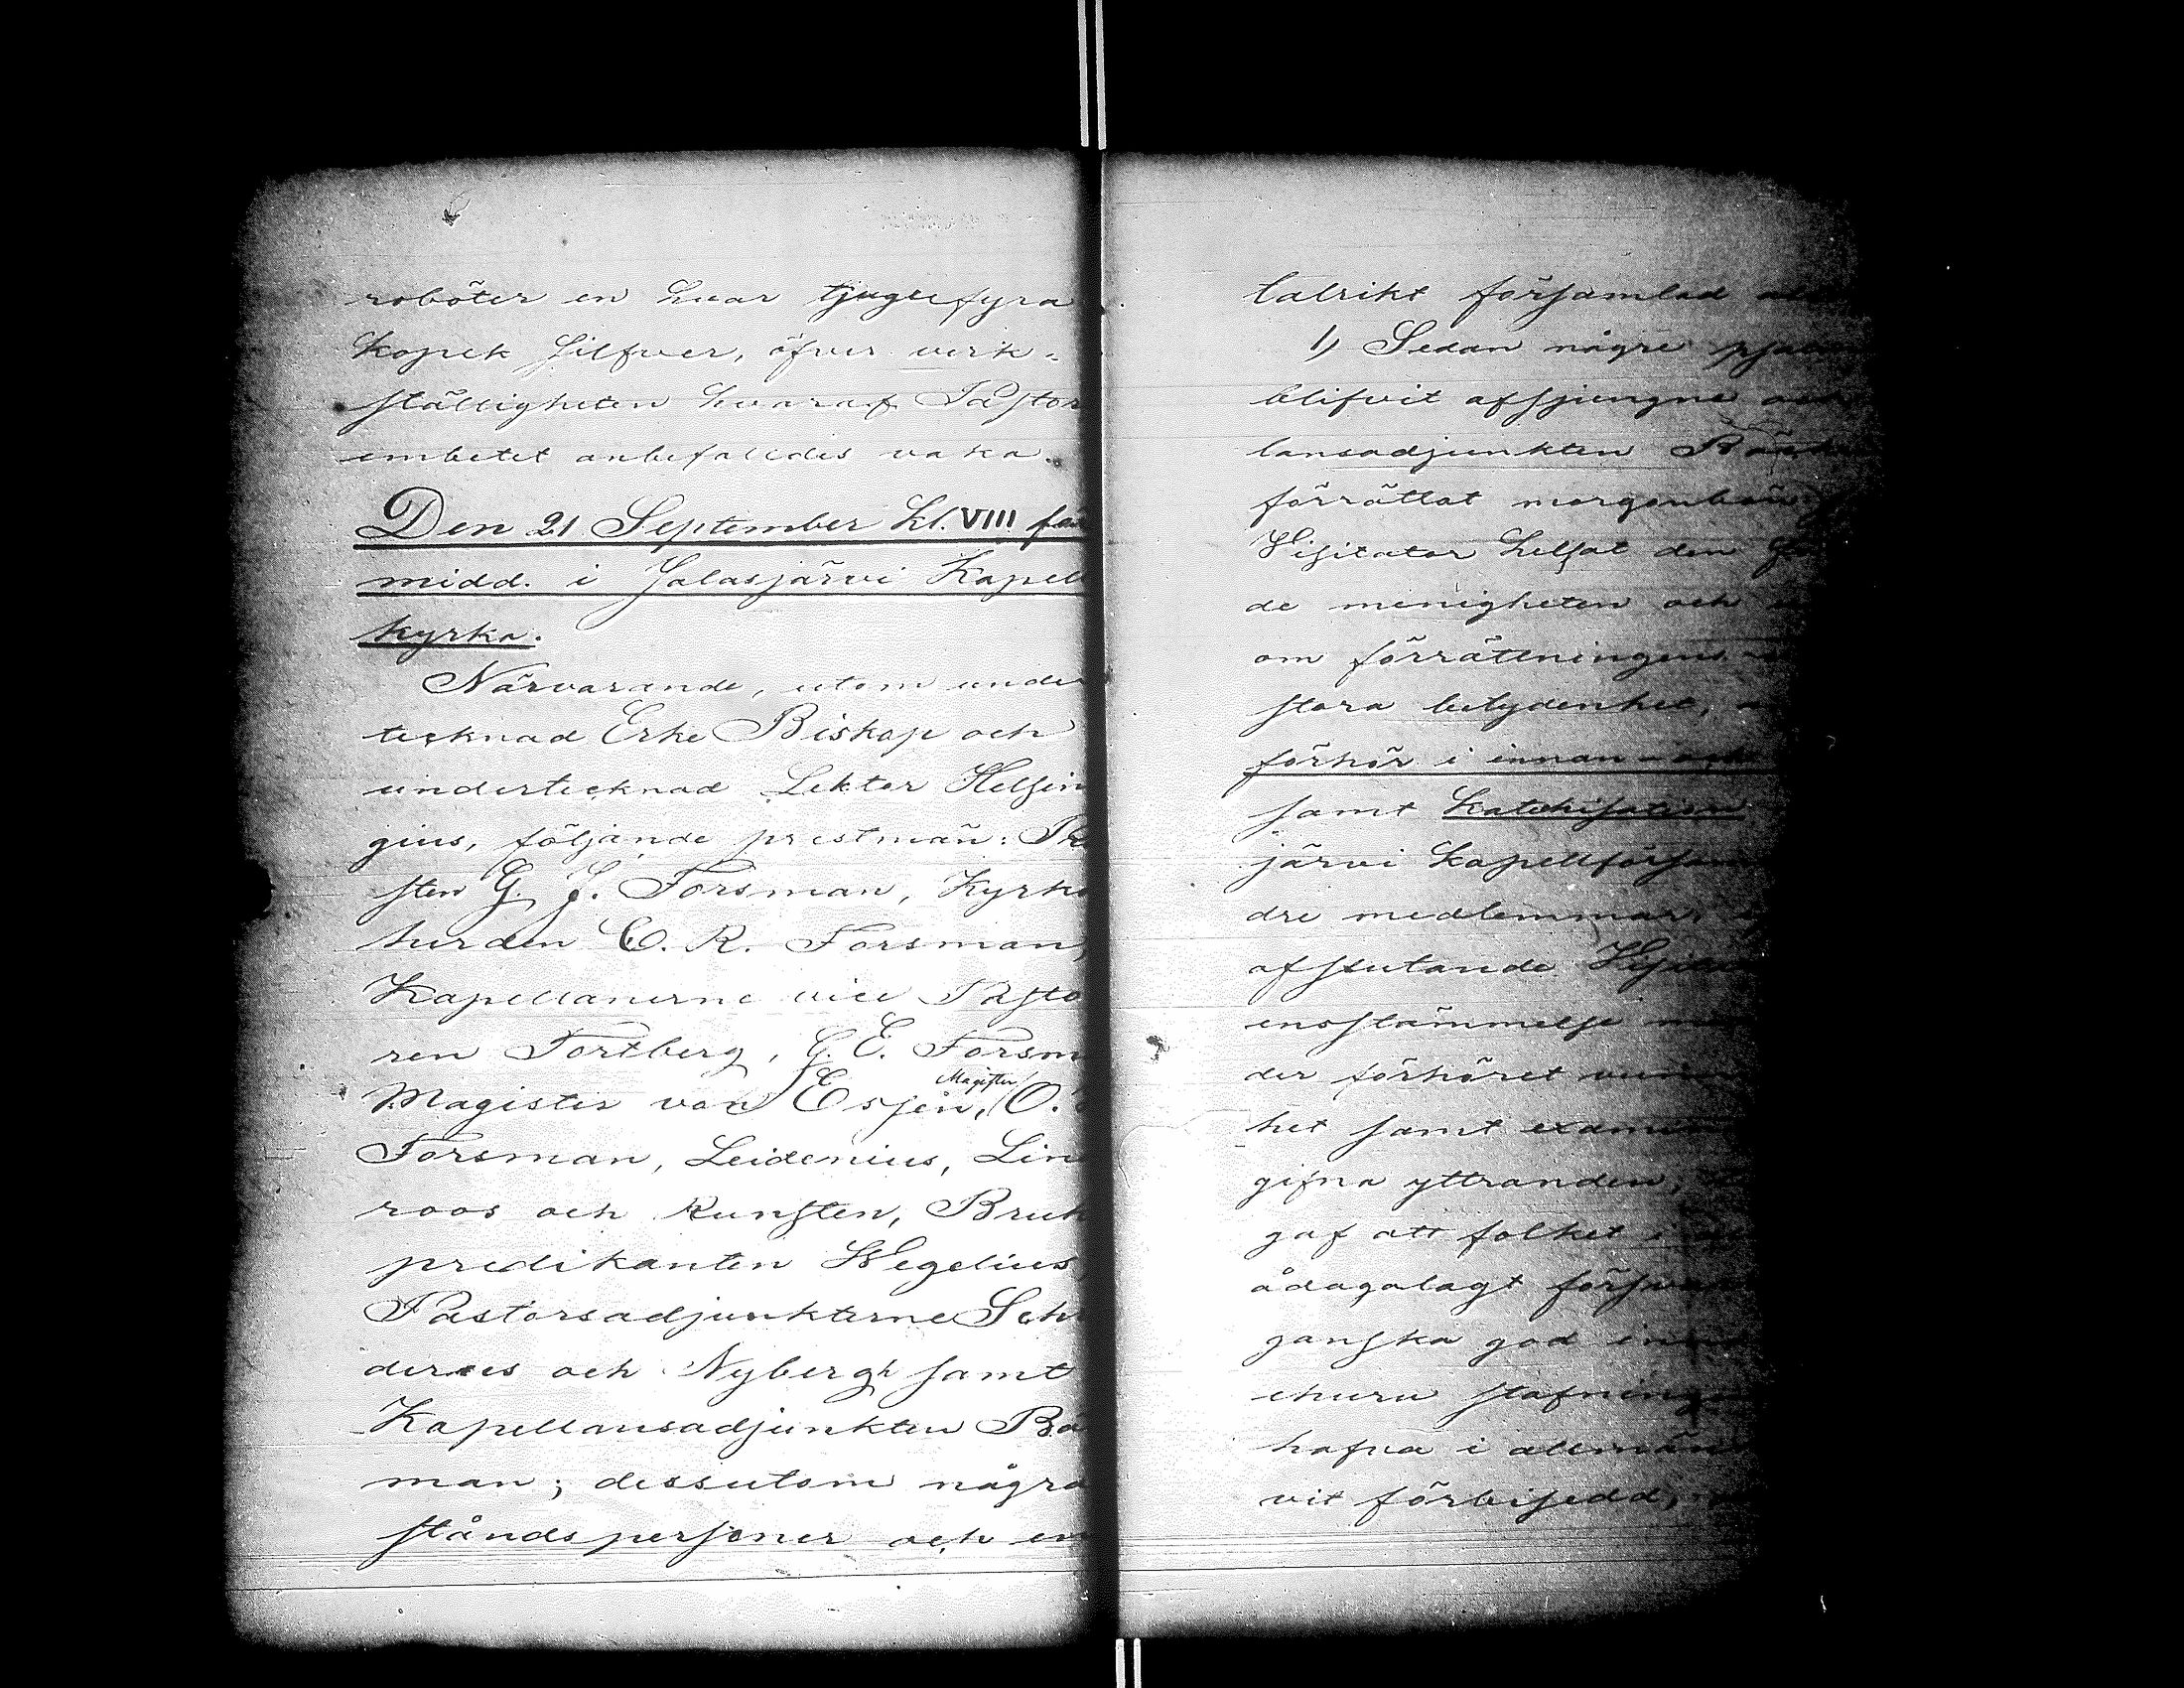 roböter en hvar tjugufyra
Kopek silfver, öfver verk-
ställigheten hvaraf Pastor
embetet anbefalldes vaka.
Den 21 September Kl. VIII för
midd. i Jalasjärvi Kapell
kyrka.
Närvarande, utom under
tecknad Erke Biskop och
undertecknad Lektor Helsin
gius, följande prestmän: Pro
sten G. J. Forsman, Kyrko
herden C. R. Forsman,
Kapellanerne vice Pasto
ren Fortberg, G. E. Forsm
Magister von Essen, Magister O.
Forsman, Leidenius, Lin
roos och Kunsten, Bruk
predikanten Wegelius,
Pastorsadjunkterne Sch
derus och Nybergh samt
Kapellansadjunkten Bä
man; dessutom några
ståndspersoner och en
talrikt församlad
1) Sedan några psal
blifvit afsjungne och
lansadjunkten
förrättat morgonbön
Visitator helsat den
de menigheten och
om förrättningens
stora betydenhet,
förhör i innan-
samt Katekisation
järvi Kapellförsam
dre medlemmar
afslutande
ensstämmelse
der förhöret
het samt
gifna yttranden,
gaf att folket i
ådagalagt försva
ganska god in
churu stafning
hafva i allmän
vit förbisedd,